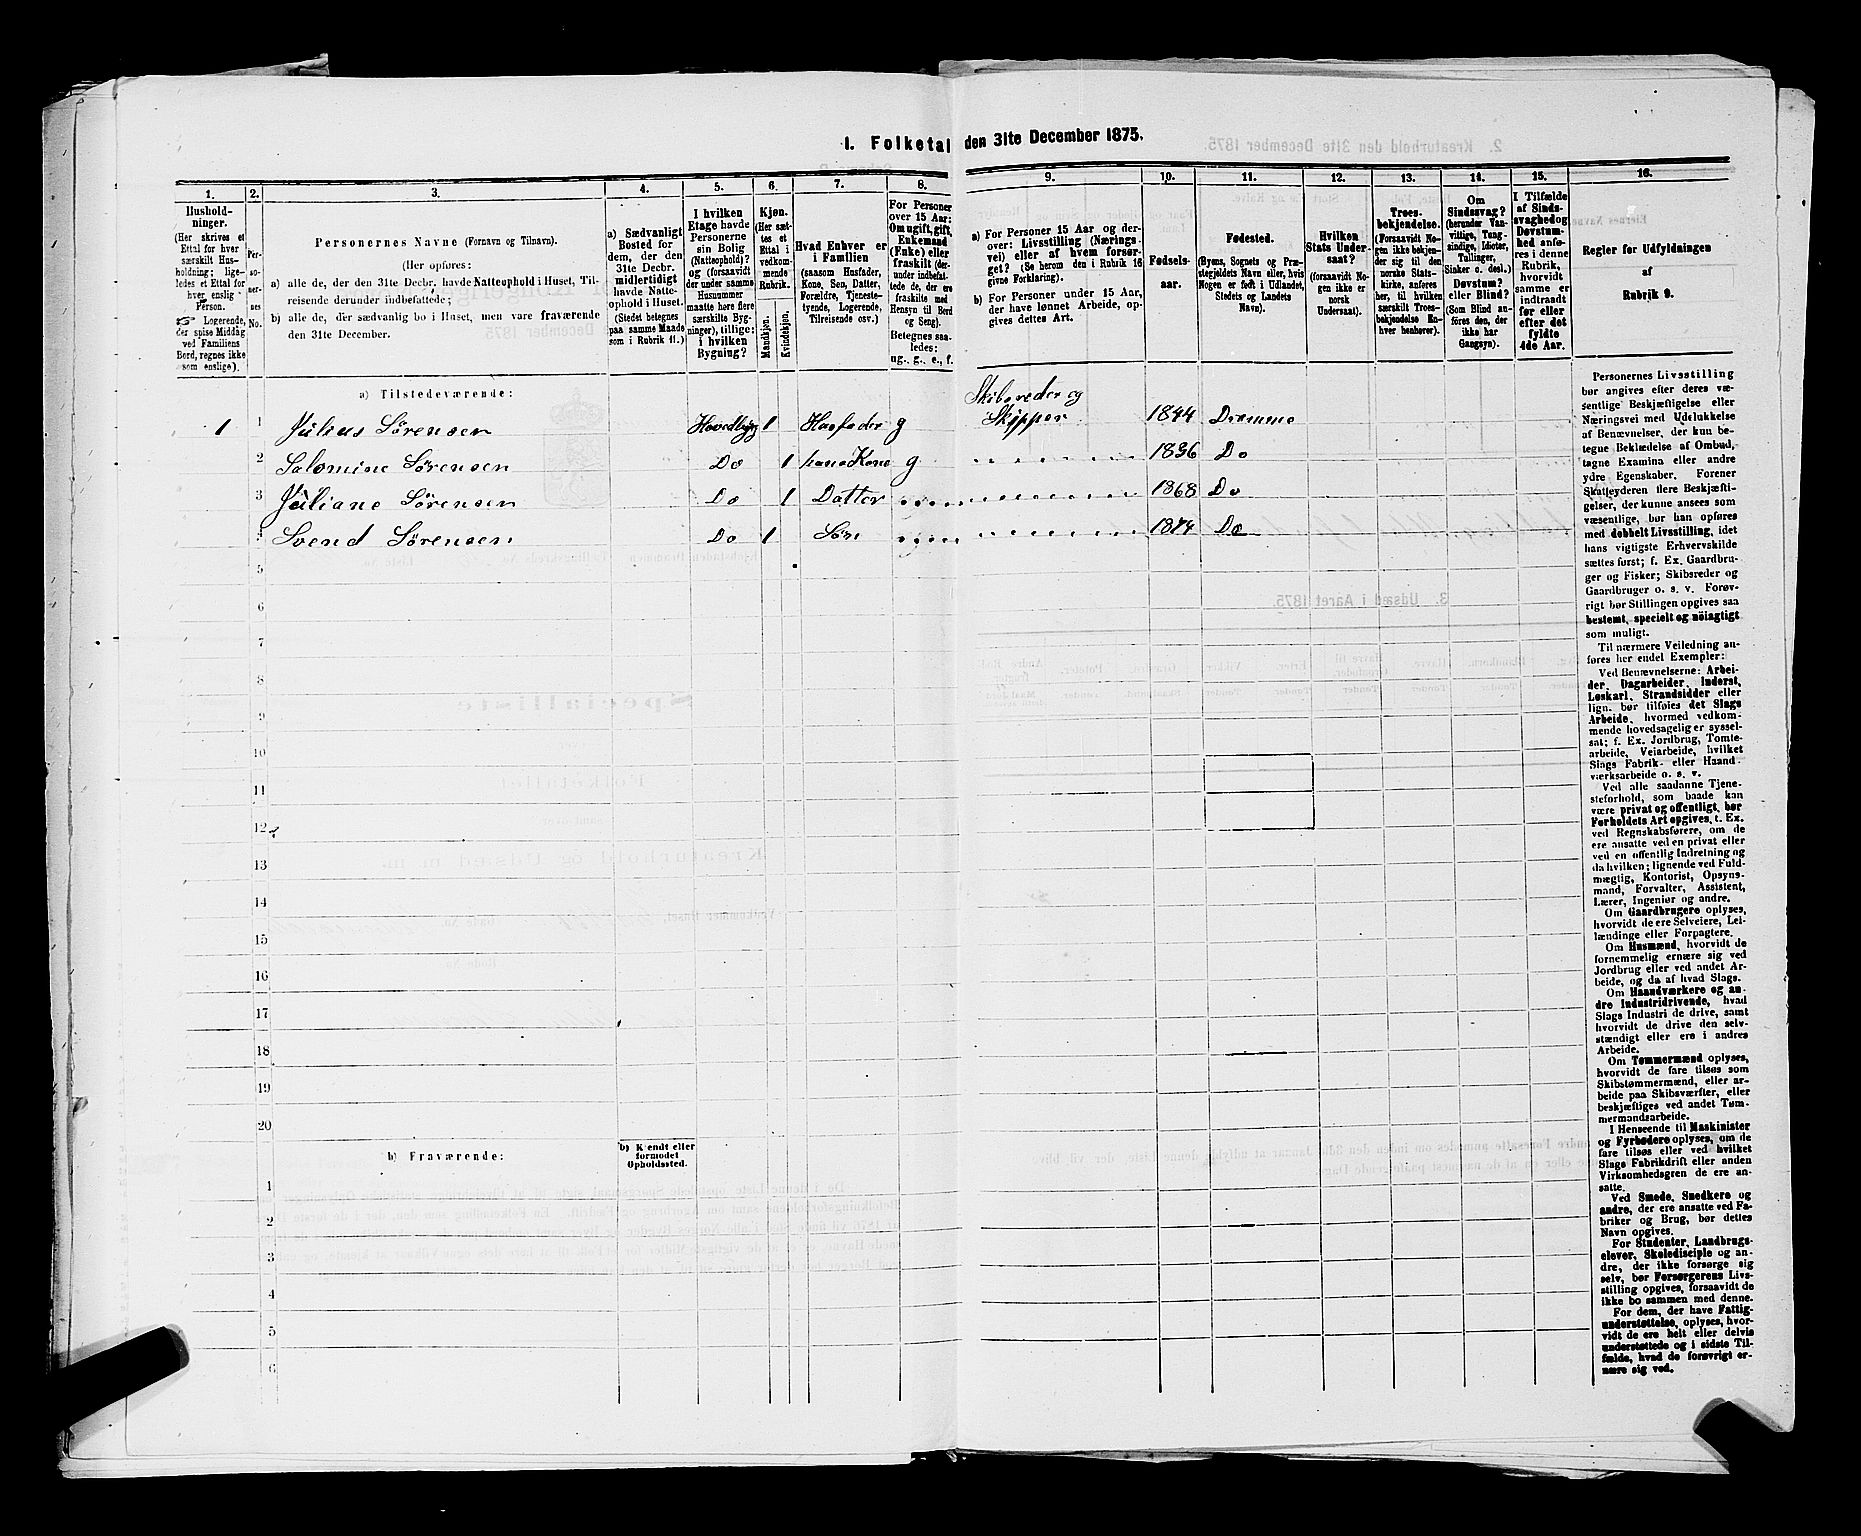 1. Folketal den 31te December 1875.
1.
2.
3.
4.
5.
6.
7.
8.
9.
10.
11.
12.
13.
14.
15.
16.
Hushold-
ninger.
(Her skrives et
Ettal for hver
særskilt Hus-
holdning; lige-
ledes et Ettal for
hver enslig
Person.
Logerende,
der spise Middag
ved Familiens
Bord, regnes ikke
som enslige).
Per-
so-
ner-
nes
No.
Personernes Navne (Fornavn og Tilnavn).
(Her opføres:
a) alle de, der den 31te Decbr. havde Natteophold i Huset, Til-
reisende derunder indbefattede;
b) alle de, der sædvanlig bo i Huset, men vare fraværende
den 31te December.
a) Sædvanligt
Bosted for
dem, der den
31te Decbr.
midlertidigt
havde Natte-
ophold i Huset.
(Stedet betegnes
paa samme Maade
som i Rubrik 11.)
I hvilken
Etage havde
Personerne
sin Bolig
(Natteophold)?
og (forsaavidt
der under samme
Husnummer
maatte høre flere
særskilte Byg-
ninger), tillige:
i hvilken
Bygning?
Kjøn.
(Her sæt-
tes et
Ettal i
vedkom-
mende
Rubrik.
Mandkjøn.
Kvindekjøn.
Hvad Enhver er
i Familien
(saasom Husfader,
Kone, Søn, Datter,
Forældre, Tjeneste-
tyende, Logerende,
Tilreisende osv.)
For Personer
over 15 Aar:
Om ugift, gift,
Enkemand
(Enke) eller
fraskilt (der-
under indbefat-
tede de, der ere
fraskilte med
Hensyn til Bord
og Seng).
Betegnes saa-
ledes:
ug., g., e., f.
a) For Personer 15 Aar og der-
over: Livsstilling (Nærings-
vei) eller af hvem forsør-
get? (Se herom den i Rubrik 16
givne Forklaring).
b) For Personer under 15 Aar,
der have lønnet Arbeide, op-
gives dettes Art.
Fødsels-
aar.
Fødested.
(Byens, Sognets og Præ-
stegjeldets Navn eller, hvis
Nogen er født i Udlandet,
Stedets og Landets
Navn).
Hvilken
Stats Under-
saat?
(forsaavidt No-
gen ikke er
norsk
Undersaat).
Troes-
bekjendelse.
(Forsaavidt No-
gen ikke bekjen-
der sig til den
norske Stats-
kirke, anføres
her, til hvilken
særskilt Troes-
bekjendelse En-
hver henhører).
Om
Sindssvag?
(herunder Van-
vittige, Tung-
sindige, Idioter,
Tullinger,
Sinker o. desl.)
Døvstum?
eller Blind?
(Som Blind an-
føres den, der
ikke har
Gangsyn).
I Tilfælde
af Sinds-
svaghed og
Døvstum-
hed anfø-
res i denne
Rubrik,
hvorvidt
samme er
indtraadt
før eller
efter det
fyldte
4de Aar.
Regler for Udfyldningen
af
Rubrik 9.
a) Tilstedeværende:
Skibsreder og
1 1 Julius Sörensen Hovedbyg 1 Husfader g Skipper 1844 Drammen
2 Salomine Sörensen Do 1 hans Kone g 1836 Do
3 Juliane Sörensen Do 1 Datter 1868 Do
4 Svend Sörensen Do 1 Sön 1874 Do
5
6
7
8
9
10
11
12
13
14
15
16
17
18
19
20
b) Fraværende:
b) Kjendt eller
formodet
Opholdssted.
1
2
3
4
5
6
Personernes Livsstilling
bør angives efter deres væ-
sentlige Beskjæftigelse eller
Næringsvei med Udelukkelse
af Benævnelser, der kun be-
tegne Beklædelse af Ombud,
tagne Examina eller andre
ydre Egenskaber. Forener
Skatteyderen flere Beskjæfti-
gelser, der kunne ansees som
væsentlige, bør han opføres
med dobbelt Livsstilling, idet
hans vigtigste Erhvervskilde
sættes først; f. Ex. Gaardbru-
ger og Fisker; Skibsreder og
Gaardbruger o. s. v. Forøv-
rigt bør Stillingen opgives saa
bestemt, specielt og nöiagtigt
som muligt.
Til nærmere Veiledning an-
føres her endel Exempler:
Ved Benævnelserne: Arbei-
der, Dagarbeider, Inderst,
Løskarl, Strandsidder eller
lign. bør tilføies det Slags
Arbeide, hvormed vedkom-
mende hovedsagelig er syssel-
sat; f. Ex. Jordbrug, Tomte-
arbeide, Veiarbeide, hvilket
Slags Fabrik- eller Haand-
værksarbeide o. s. v.
Ved alle saadanne Tjene-
steforhold, som baade kan
være privat og offentligt, bør
Forholdets Art opgives, t. Ex.
ved Regnskabsførere, om de
ere ansatte ved en privat eller
ved en offentlig Indretning og
da hvilken; lignende ved Fuld-
mægtig, Kontorist, Opsyns-
mand, Forvalter, Assistent,
Lærer, Ingeniør og andre.
Om Gaardbrugere oplyses,
hvorvidt de ere Selveiere, Lei-
lændinge eller Forpagtere.
Om Husmænd, hvorvidt de
fornemmelig ernære sig ved
Jordbrug eller ved andet Ar-
beide, og da af hvad Slags.
Om Haandværkere og an-
dre Industridrivende, hvad
Slags Industri de drive, samt
hvorvidt de drive den selv-
stændigt eller ere i andres
Arbeide.
Om Tømmermænd oplyses,
hvorvidt de fare tilsøs som
Skibstømmermænd, eller ar-
beide paa Skibsværfter, eller
beskjæftiges ved andet Tøm-
mermandsarbeide.
I Henseende til Maskinister
og Fyrbødere oplyses, om de
fare tilsøs eller ved hvilket
Slags Fabrikdrift eller anden
Virksomhedsgren de ere an-
satte.
Ved Smede, Snedkere og
andre, der ere ansatte ved Fa-
briker og Brug, bør dettes
Navn opgives.
For Studenter, Landbrugs-
elever, Skoledisciple og an-
dre, der ikke forsørge sig
selv, bør Forsørgerens Livs-
stilling opgives, forsaavidt de
ikke bo sammen med denne.
For dem, der have Fattig-
understøttelse, oplyses, hvor-
vidt de ere helt eller delvis
understøttede og i sidste Til-
fælde, hvad de forøvrigt er-
nære sig ved.